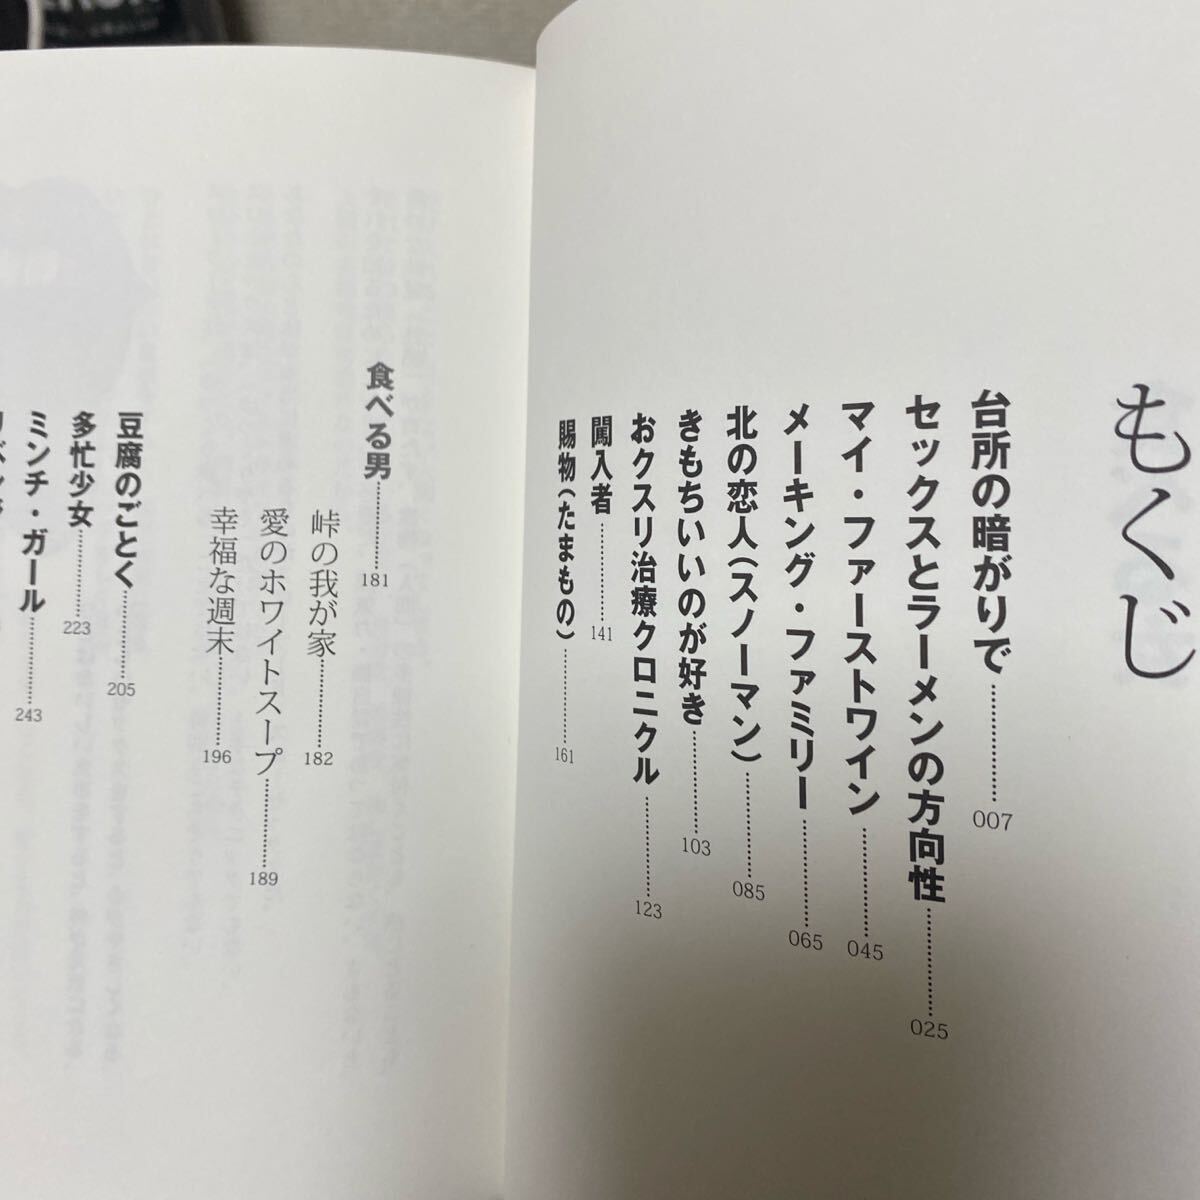 もくじ
台所の暗がりで………007
セックスとラーメンの方向性………025
マイ・ファーストワイン………045
メーキング・ファミリー………065
北の恋人（スノーマン）………085
きもちいいのが好き………103
おクスリ治療クロニクル………123
闖入者………141
賜物（たまもの）………161
食べる男………181
峠の我が家………182
愛のホワイトスープ………189
幸福な週末………196
豆腐のごとく………205
多忙少女………223
ミンチ・ガール………243